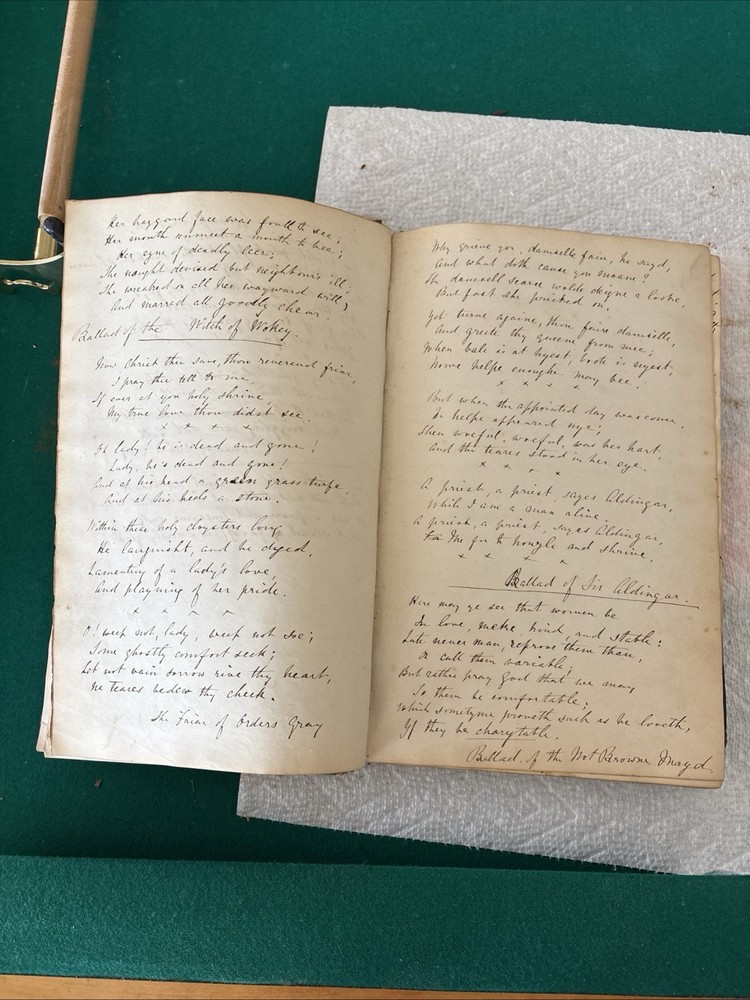 Her haggard face was foull to see;
Her mouth unmeet a mouth to bee;
Her eyne of deadly leer;
She nought devised but neighbour's ill;
She wreaked on all her wayward will,
And marred all goodly chear.
Ballad of the Witch of Wokey.
Now Christ thee save, thou reverend friar,
I pray thee tell to me,
If ever at yon holy shrine,
My true love thou didst see.
x x x x
Oh lady! he is dead and gone!
Lady, he's dead and gone!
And at his head a green grass turfe,
And at his heels a stone.
Within these holy cloysters long
He languisht, and he dyed,
Lamenting of a lady's love,
And playning of her pride.
x x x x
O! weep not, lady, weep not soe;
Some ghostly comfort seek;
Let not vain sorrow rive thy heart,
Ne teares bedew thy cheek.
The Friar of Orders Gray
Why grieve you, damselle faire, he sayd,
And what doth cause you moane?
The damsell scarce wolde deigne a looke,
But fast she pricked on.
Yet turne againe, thou faire damselle,
And greete thy queene from mee;
When bale is at hyest, boote is nyest,
Nowe helpe enoughe may bee.
x x x x
But when the appointed day was come,
No helpe appeared nye;
Then woeful, woeful, was her hart,
And the teares stood in her eye.
x x x x
A priest, a priest, sayes Aldingar,
While I am a man alive,
A priest, a priest, sayes Aldingar,
For Me for to houzle and shrive.
x x x x
Ballad of Sir Aldingar.
Here may ye see that women be
In love, meke, kind, and stable:
Late never man, reprove them than,
Or call them variable;
But rather pray God that we may
To them be comfortable;
Which sometyme proveth such as he loveth,
If they be charytable.
Ballad of the Not Browne Mayd.